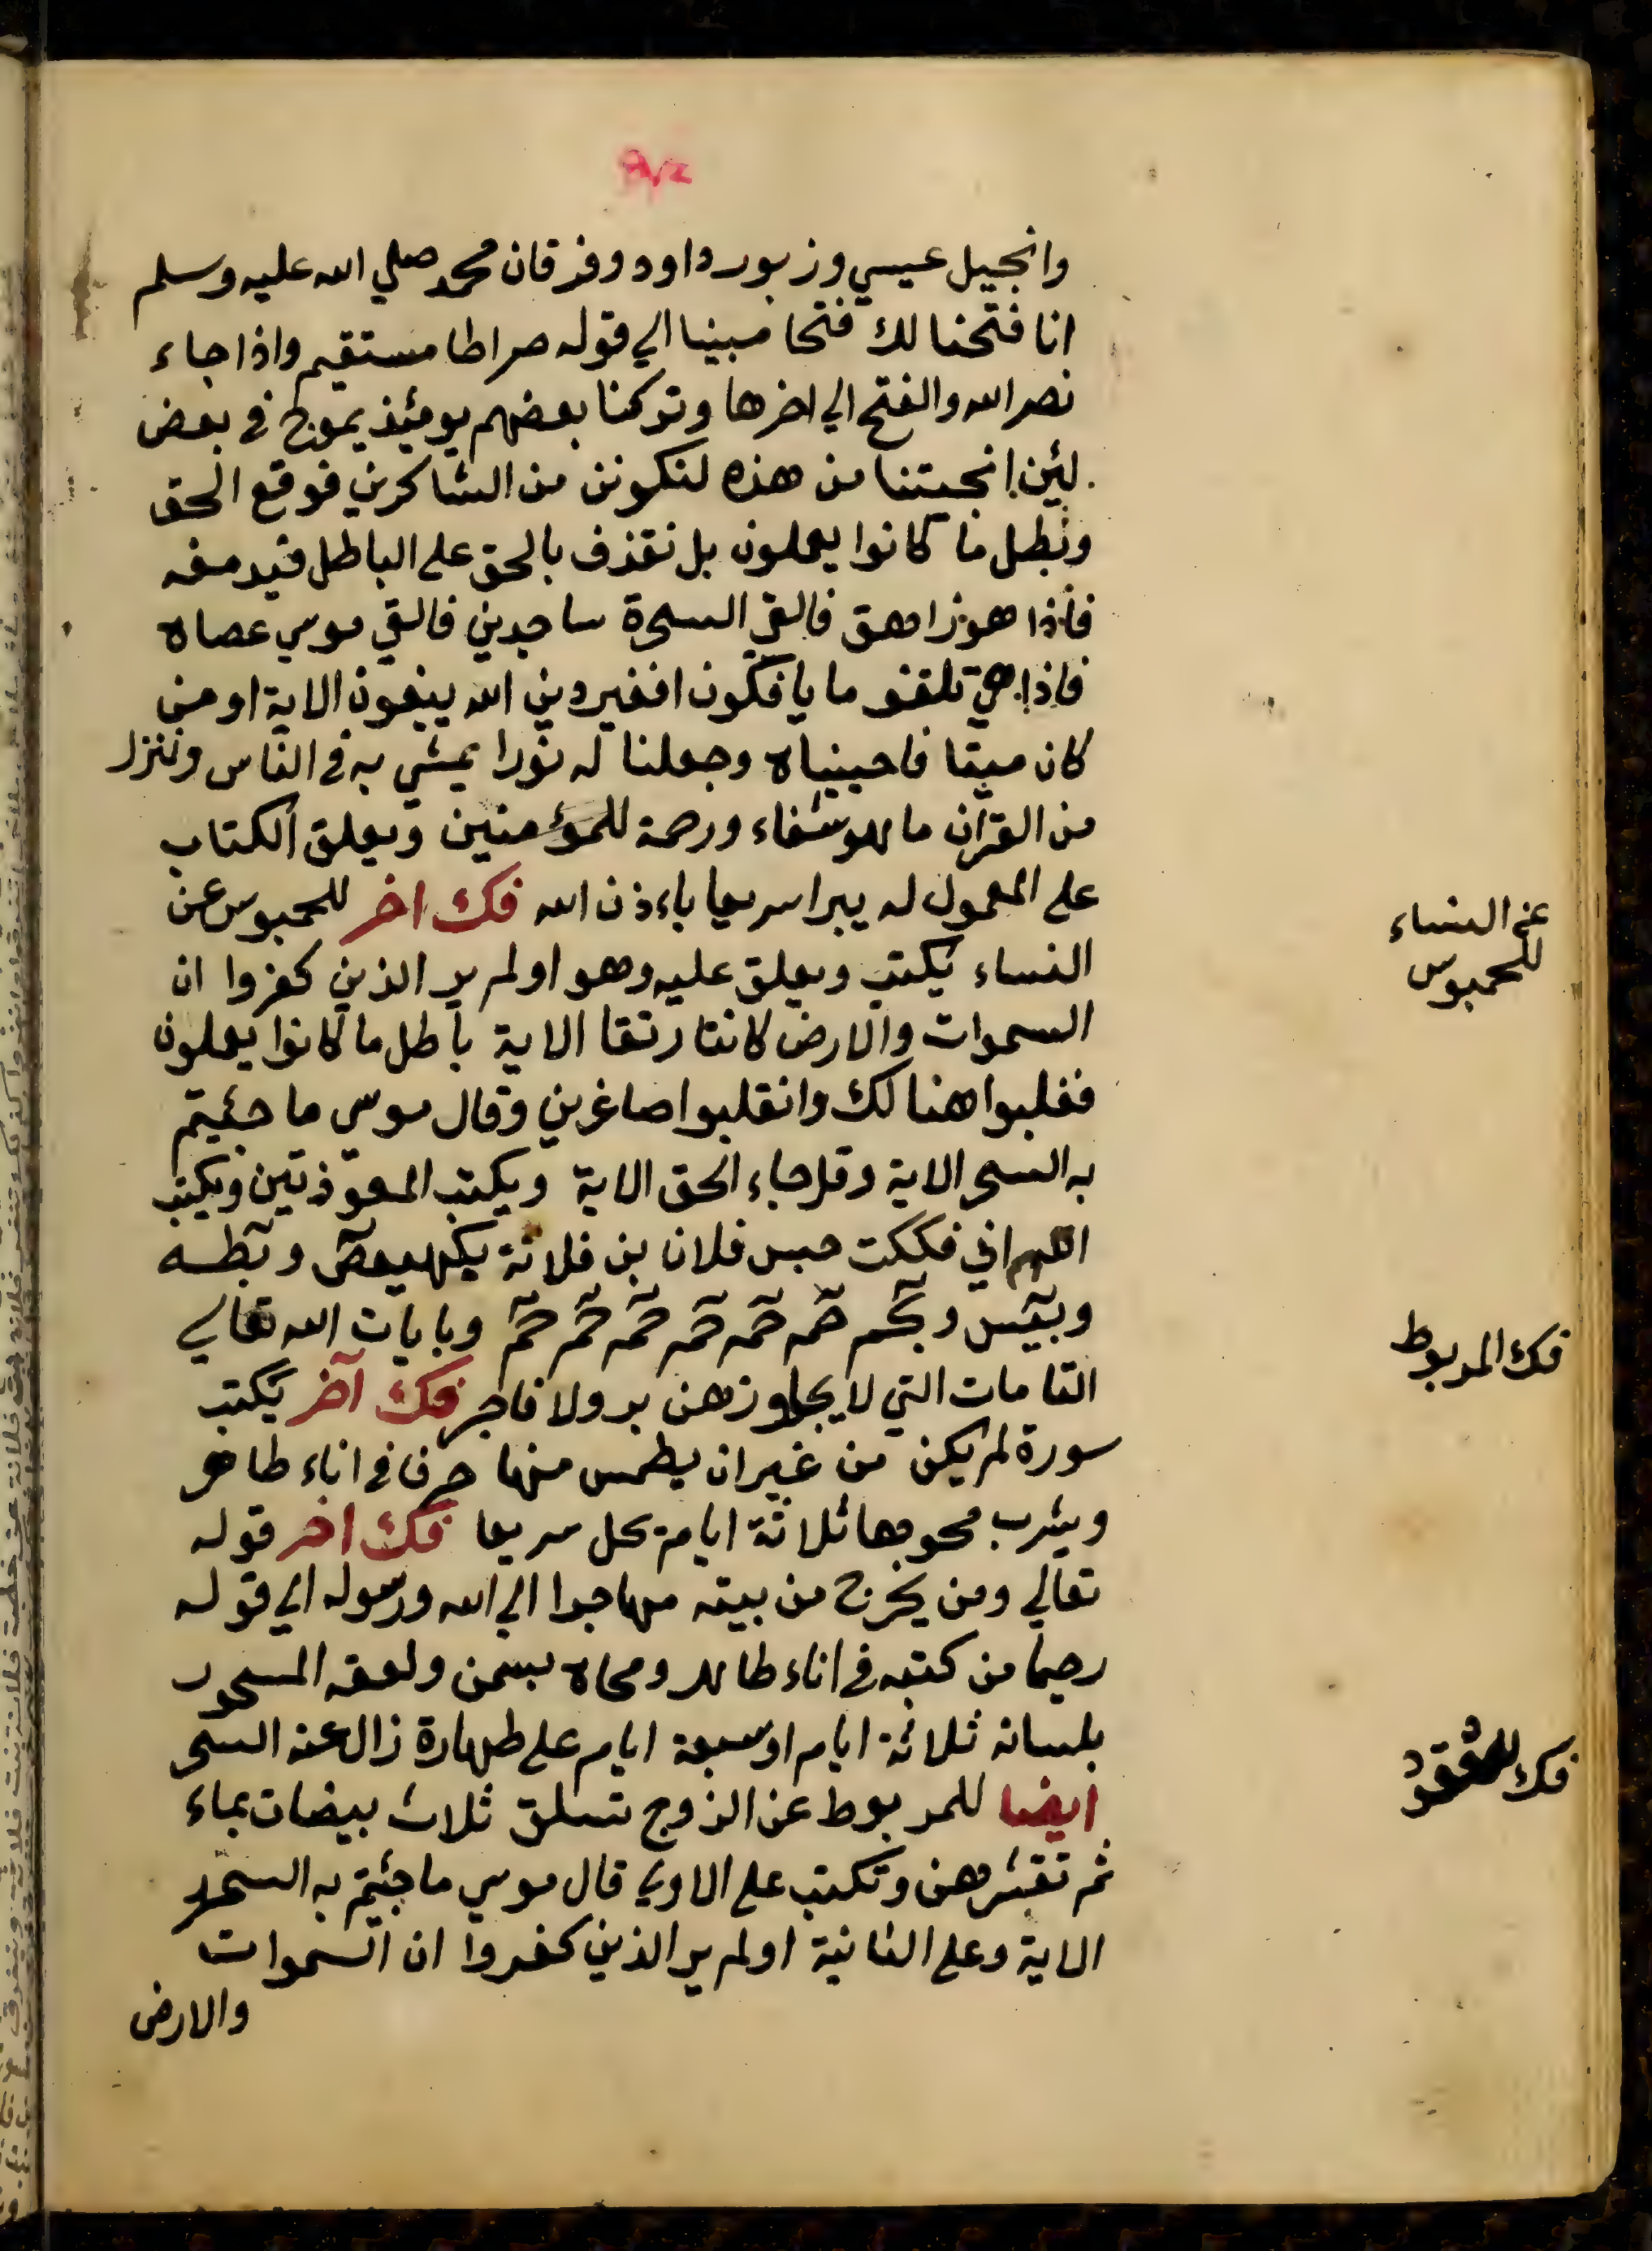 وانجيل عيسي وزبور داود وفرقان محمد صلي الله عليه وسلم
انا فتحنا لك فتحا مبينا الي قوله صراطا مستقيم واذا جاء
نصر الله والفتح الي اخرها وتركنا بعضهم يومئذ يموج في بعض
لئن انجيتنا من هذه لنكونن من الشاكرين فوقع الحق
وبطل ما كانوا يعملون بل نقذف بالحق علي الباطل فيدمغه
فاذا هو زاهق فالقي السحرة ساجدين فالقي موسي عصاه
فاذا هي تلقف ما يافكون افغير دين الله يبغون الاية او من
كان ميتا فاحييناه وجعلنا له نورا يمشي به في الناس وننزل
من القرآن ما هو شفاء ورحمة للمؤمنين ويعلق الكتاب
علي المعمول له يبرا سريعا باءذن الله فك اخر للمحبوس عن
النساء يكتب ويعلق عليه وهو اولم ير الذين كفروا ان
السموات والارض كانتا رتقا الاية باطل ما كانوا يعملون
فغلبوا هنالك وانقلبوا صاغرين وقال موسي ما جئيتم
به السحر الاية وقل جاء الحق الاية ويكتب المعوذتين ويكتب
اللهم اني فككت حبس فلان بن فلانة بكهيعص وبطسه
وبيس وبحم حم حم حم حم حم حم وبايات الله تعالي
التامات التي لا يجاوزهن بر ولا فاجر فك آخر يكتب
سورة لم يكن من غير ان يطمس منها حرف في اناء طاهر
ويشرب محوها ثلاثة ايام يحل سريعا فك اخر قوله
تعالي ومن يخرج من بيته مهاجرا الي الله ورسوله الي قوله
رحيما من كتبه في اناء طاهر ومحاه بسمن ولعقه المسحور
بلسانه ثلاثة ايام او سبعة ايام علي طهارة زال عنه السحر
ايضا للمربوط عن الزوج تسلق ثلاث بيضات بماء
ثم تقشرهن وتكتب علي الاولي قال موسي ما جئتم به السحر
الاية وعلي الثانية اولم ير الذين كفروا ان السموات
والارض
عن النساء
للمحبوس
فك المربوط
فك